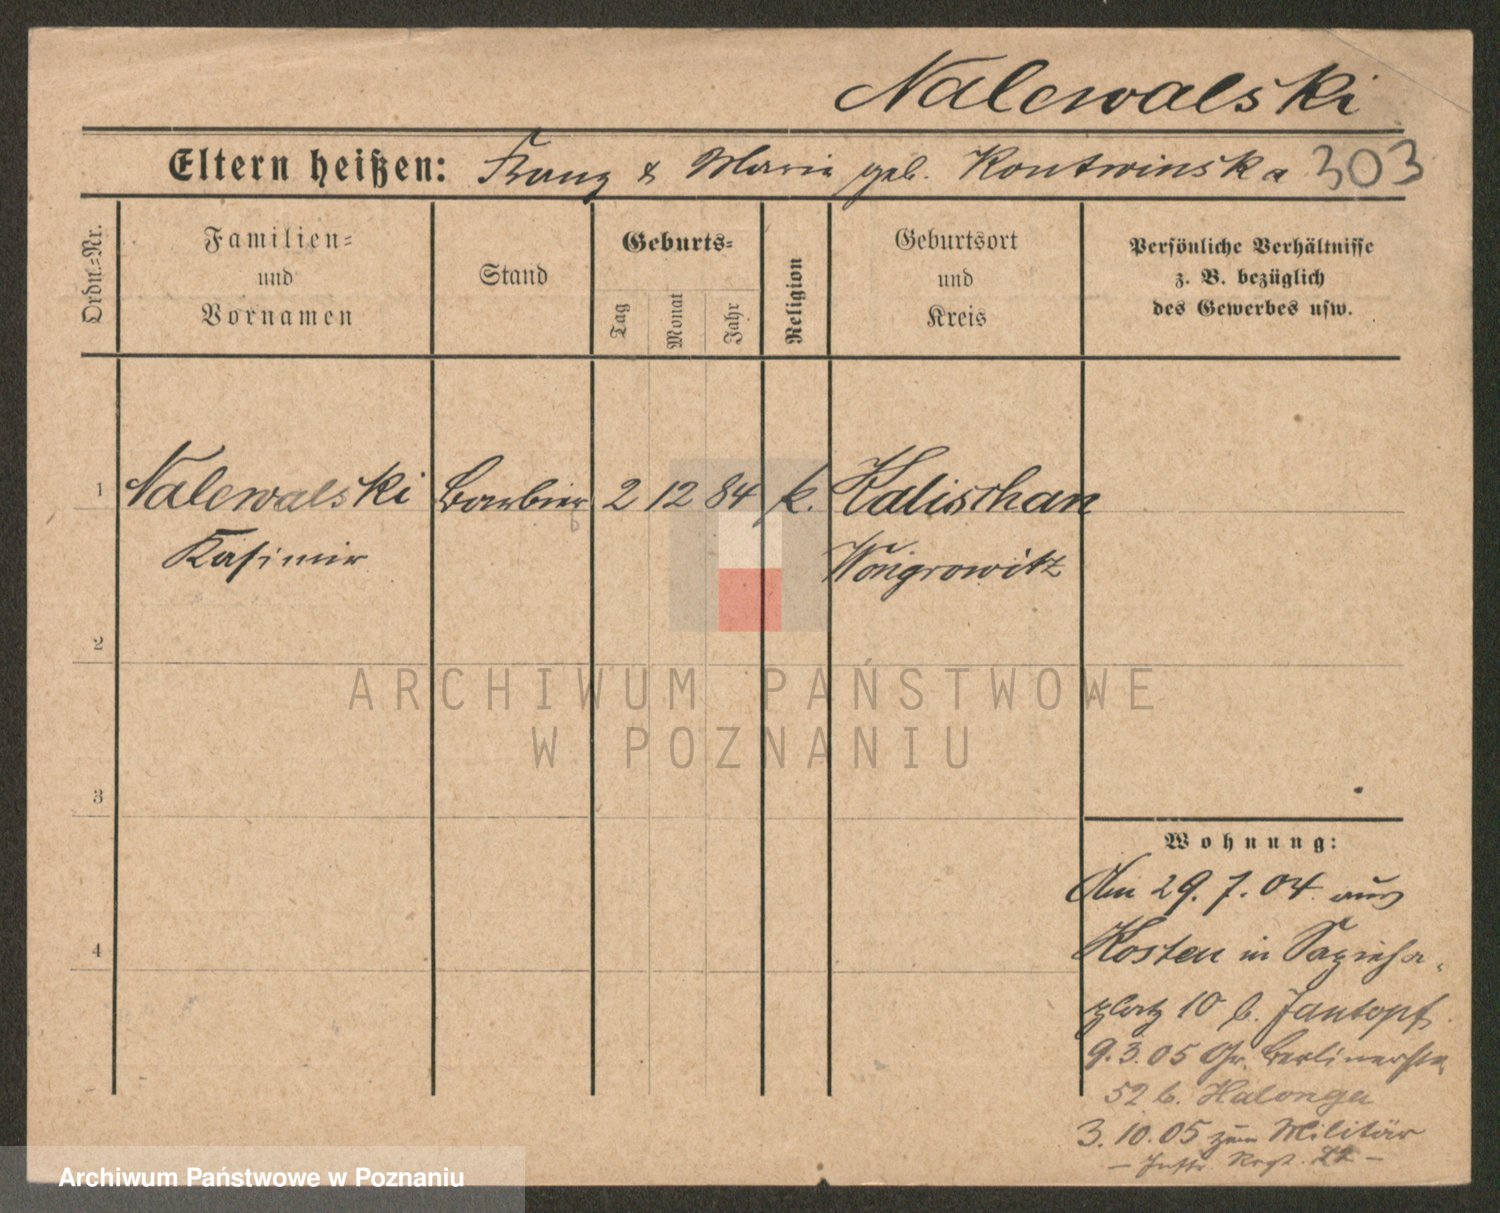 Nalewalski
Eltern heißen: Franz & Maria geb. Kontwinska 303
Ordn.=Nr.
Familien=
und
Vornamen
Stand
Geburts=
Tag
Monat
Jahr
Religion
Geburtsort
und
Kreis
Persönliche Verhältnisse
z. B. bezüglich
des Gewerbes usw.
1 Nalewalski Barbier 2 12 84 k. Kalischan
Kasimir Wongrowitz
2
ARCHIWUM PAŃSTWOWE
W POZNANIU
3
Wohnung:
Am 29. 7. 04 aus
4 Kosten in Sapieha-
platz 10 b. Jantopf.
9. 3. 05 Gr. Berlinerstr.
52 b. Halonga
3. 10. 05 zum Militär
— Inftr. Regt. —
Archiwum Państwowe w Poznaniu